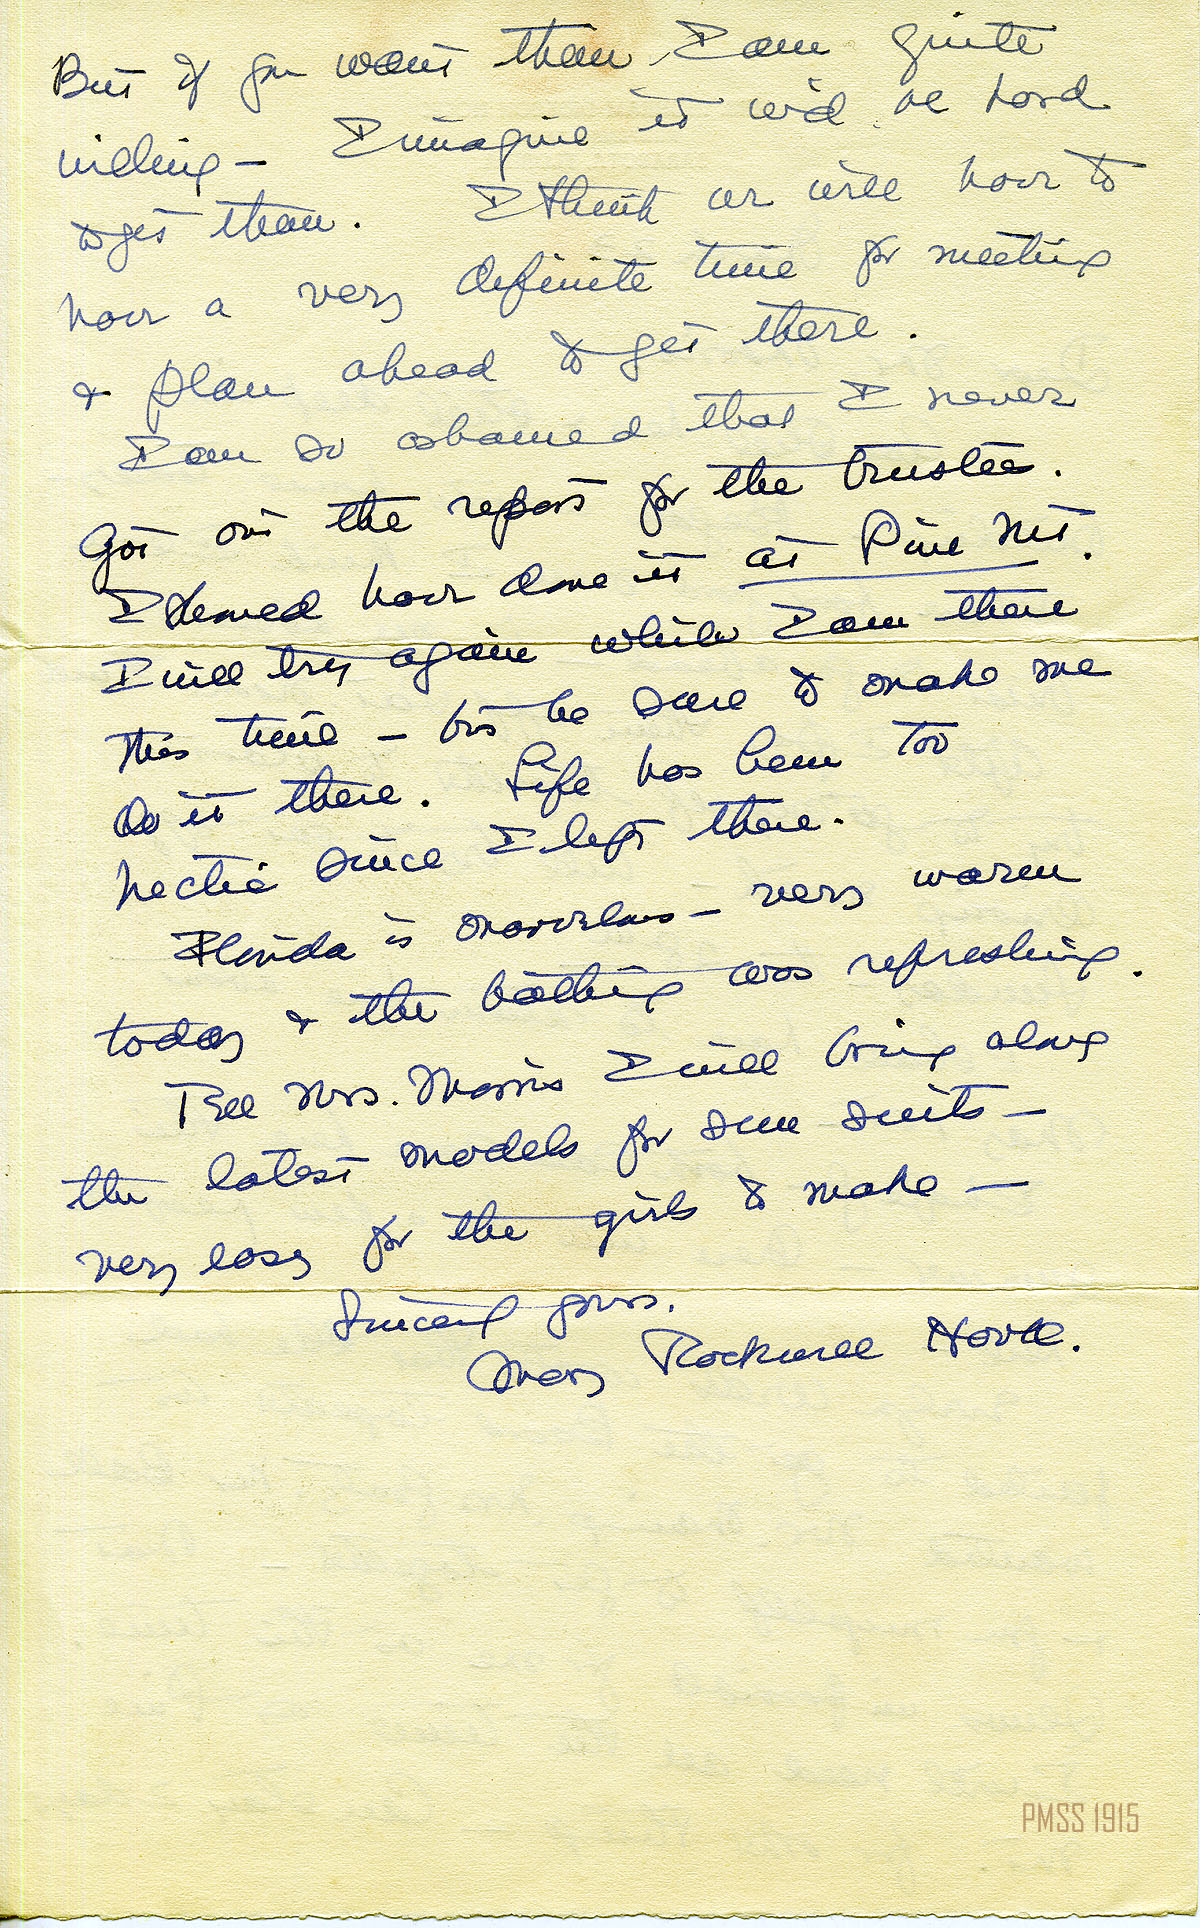 But if you want them I am quite
willing — I imagine it w'd be hard
to get them. I think we will have to
have a very definite time for meeting
& plan ahead to get there.
I am so ashamed that I never
got out the report for the trustees.
I should have done it at Pine Mt.
I will try again while I am there
this time — but be sure to make me
do it there. Life has been too
hectic since I left there.
Florida is marvelous — very warm
today & the bathing was refreshing.
Tell Mrs. Morris I will bring along
the latest models for sun suits —
very easy for the girls to make —
Sincerely yours.
Mary Rockwell Hook.
PMSS 1915